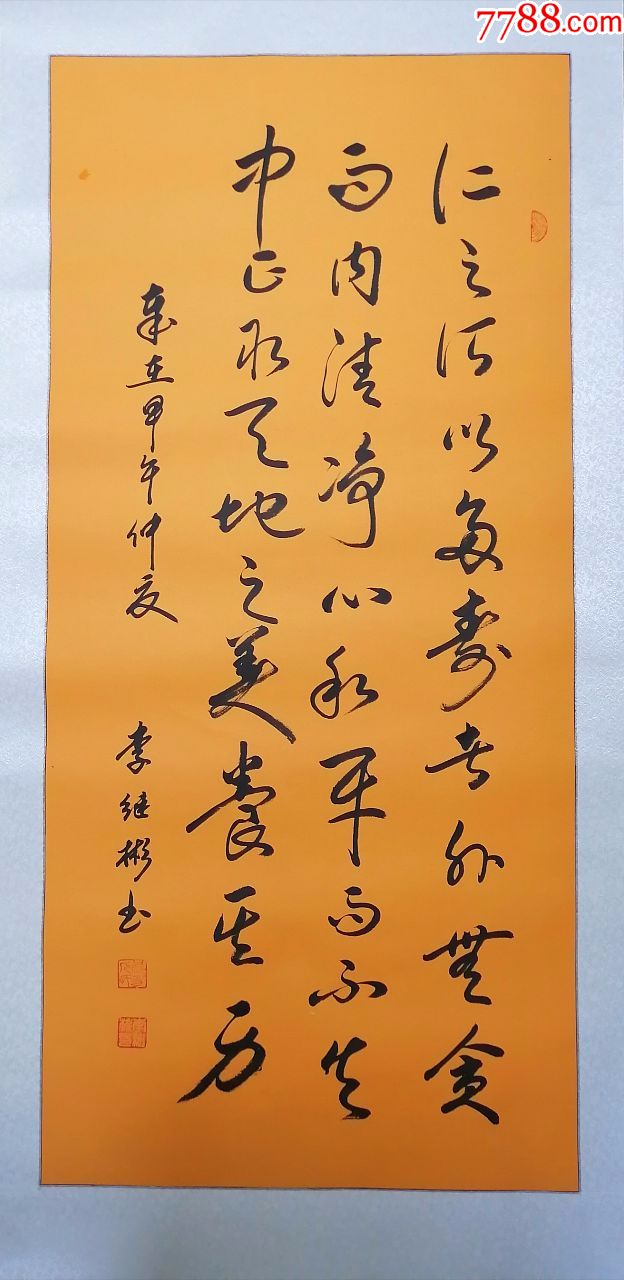 仁之所以多寿者外無贪
而内清净心和平而不失
中正取天地之美養其身
歲在甲午仲夏
李继彬书
7788.com